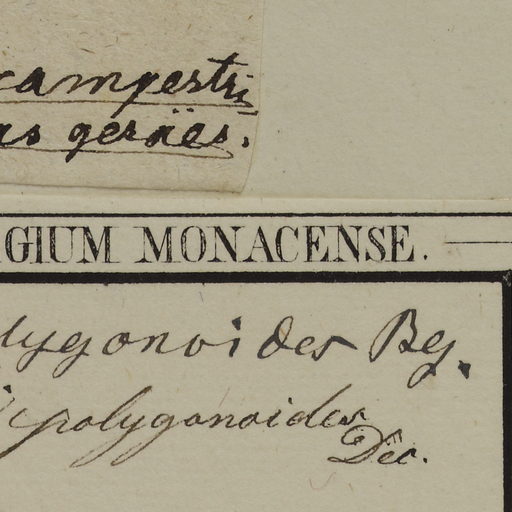 campestri
as geraës.
GIUM MONACENSE.
lygonoides Bg.
polygonoides
Dec.